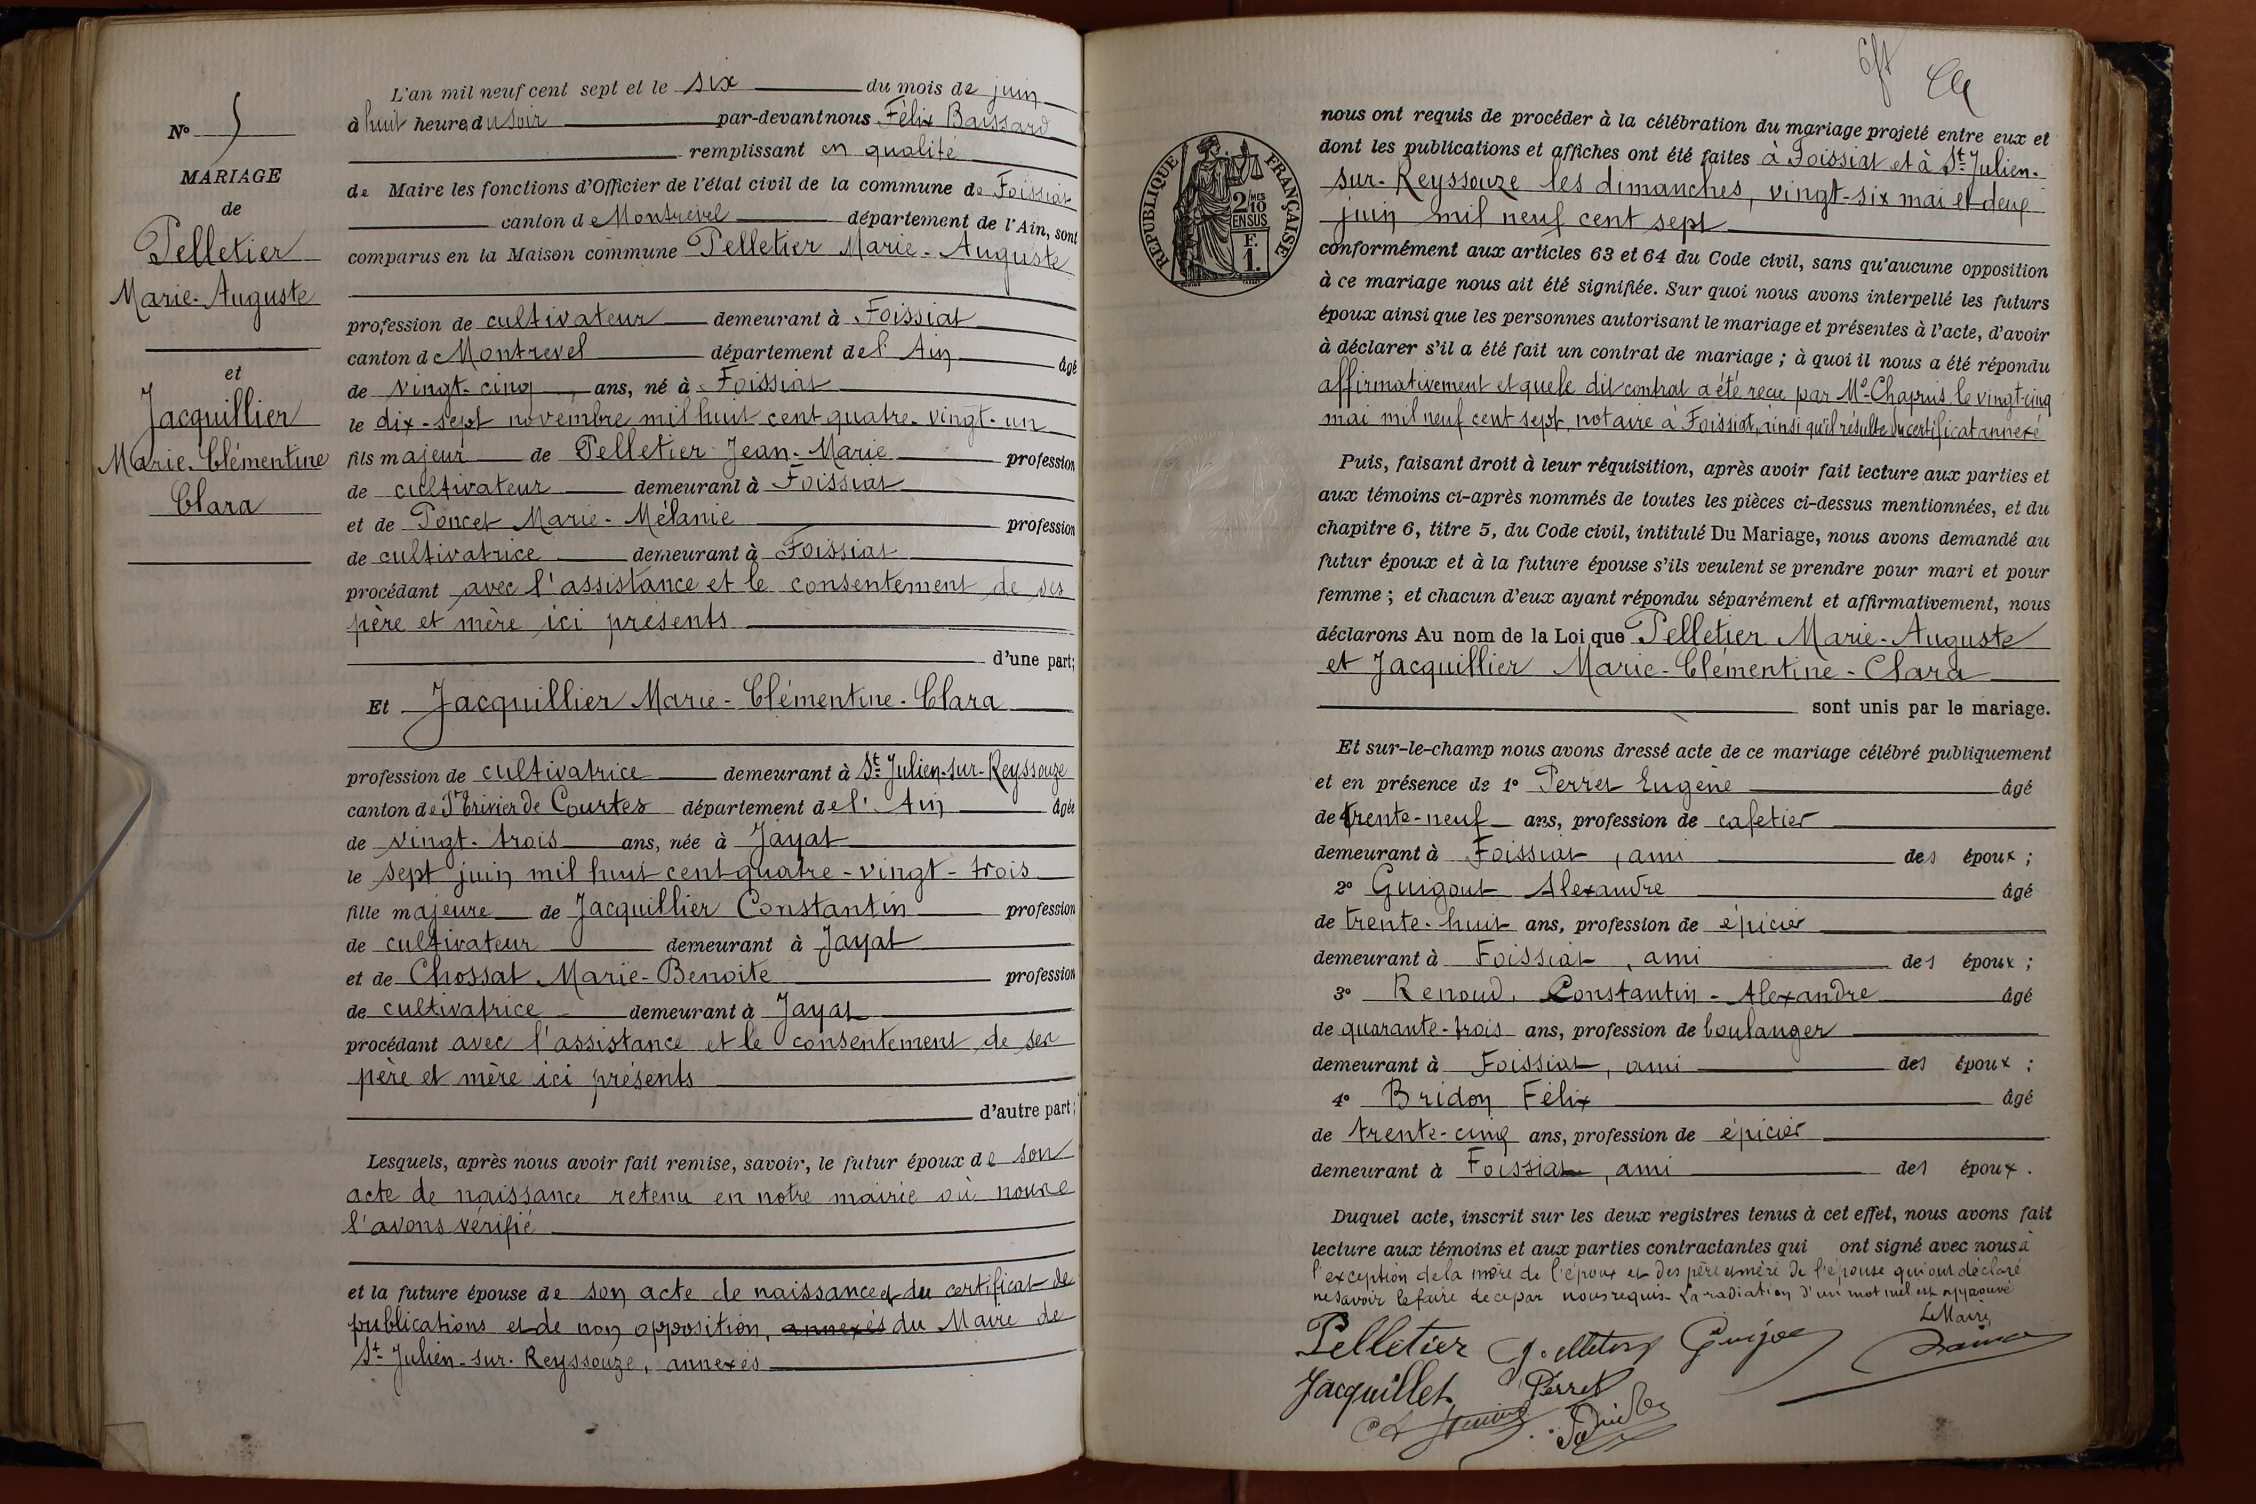 N° 5
MARIAGE
de
Pelletier
Marie-Auguste
et
Jacquillier
Marie-Clémentine
Clara
L'an mil neuf cent sept et le six du mois de juin
à huit heures du soir par-devant nous Félix Baissard
remplissant en qualité
de Maire les fonctions d'Officier de l'état civil de la commune de Foissiat
canton de Montrevel département de l'Ain, sont
comparus en la Maison commune Pelletier Marie-Auguste
profession de cultivateur demeurant à Foissiat
canton de Montrevel département de l'Ain âgé
de vingt-cinq ans, né à Foissiat
le dix-sept novembre mil huit cent quatre-vingt-un
fils majeur de Pelletier Jean-Marie profession
de cultivateur demeurant à Foissiat
et de Poncet Marie-Mélanie profession
de cultivatrice demeurant à Foissiat
procédant avec l'assistance et le consentement de ses
père et mère ici présents
d'une part;
Et Jacquillier Marie-Clémentine-Clara
profession de cultivatrice demeurant à St Julien-sur-Reyssouze
canton de St Trivier de Courtes département de l'Ain âgée
de vingt-trois ans, née à Jayat
le sept juin mil huit cent quatre-vingt-trois
fille majeure de Jacquillier Constantin profession
de cultivateur demeurant à Jayat
et de Chossat Marie-Benoite profession
de cultivatrice demeurant à Jayat
procédant avec l'assistance et le consentement de ses
père et mère ici présents
d'autre part;
Lesquels, après nous avoir fait remise, savoir, le futur époux de son
acte de naissance retenu en notre mairie où nous
l'avons vérifié
et la future épouse de son acte de naissance et du certificat de
publications et de non opposition, annexés du Maire de
St Julien-sur-Reyssouze, annexés
REPUBLIQUE FRANÇAISE
2/10 MES
EN SUS
F.
1.
nous ont requis de procéder à la célébration du mariage projeté entre eux et
dont les publications et affiches ont été faites à Foissiat et à St Julien-
sur-Reyssouze les dimanches, vingt-six mai et deux
juin mil neuf cent sept
conformément aux articles 63 et 64 du Code civil, sans qu'aucune opposition
à ce mariage nous ait été signifiée. Sur quoi nous avons interpellé les futurs
époux ainsi que les personnes autorisant le mariage et présentes à l'acte, d'avoir
à déclarer s'il a été fait un contrat de mariage ; à quoi il nous a été répondu
affirmativement et que le dit contrat a été reçu par Me Chapuis le vingt-cinq
mai mil neuf cent sept, notaire à Foissiat, ainsi qu'il résulte du certificat annexé
Puis, faisant droit à leur réquisition, après avoir fait lecture aux parties et
aux témoins ci-après nommés de toutes les pièces ci-dessus mentionnées, et du
chapitre 6, titre 5, du Code civil, intitulé Du Mariage, nous avons demandé au
futur époux et à la future épouse s'ils veulent se prendre pour mari et pour
femme ; et chacun d'eux ayant répondu séparément et affirmativement, nous
déclarons Au nom de la Loi que Pelletier Marie-Auguste
et Jacquillier Marie-Clémentine-Clara
sont unis par le mariage.
Et sur-le-champ nous avons dressé acte de ce mariage célébré publiquement
et en présence de 1° Perret Eugène âgé
de trente-neuf ans, profession de cafetier
demeurant à Foissiat, ami des époux ;
2° Guigout Alexandre âgé
de trente-huit ans, profession de épicier
demeurant à Foissiat, ami des époux ;
3° Renoud, Constantin-Alexandre âgé
de quarante-trois ans, profession de boulanger
demeurant à Foissiat, ami des époux ;
4° Bridon Félix âgé
de trente-cinq ans, profession de épicier
demeurant à Foissiat, ami des époux.
Duquel acte, inscrit sur les deux registres tenus à cet effet, nous avons fait
lecture aux témoins et aux parties contractantes qui ont signé avec nous à
l'exception de la mère de l'époux et des père et mère de l'épouse qui ont déclaré
ne savoir le faire de ce par nous requis. La radiation d'un mot nul est approuvé
Le Maire
Pelletier
Jacquillet
Perret